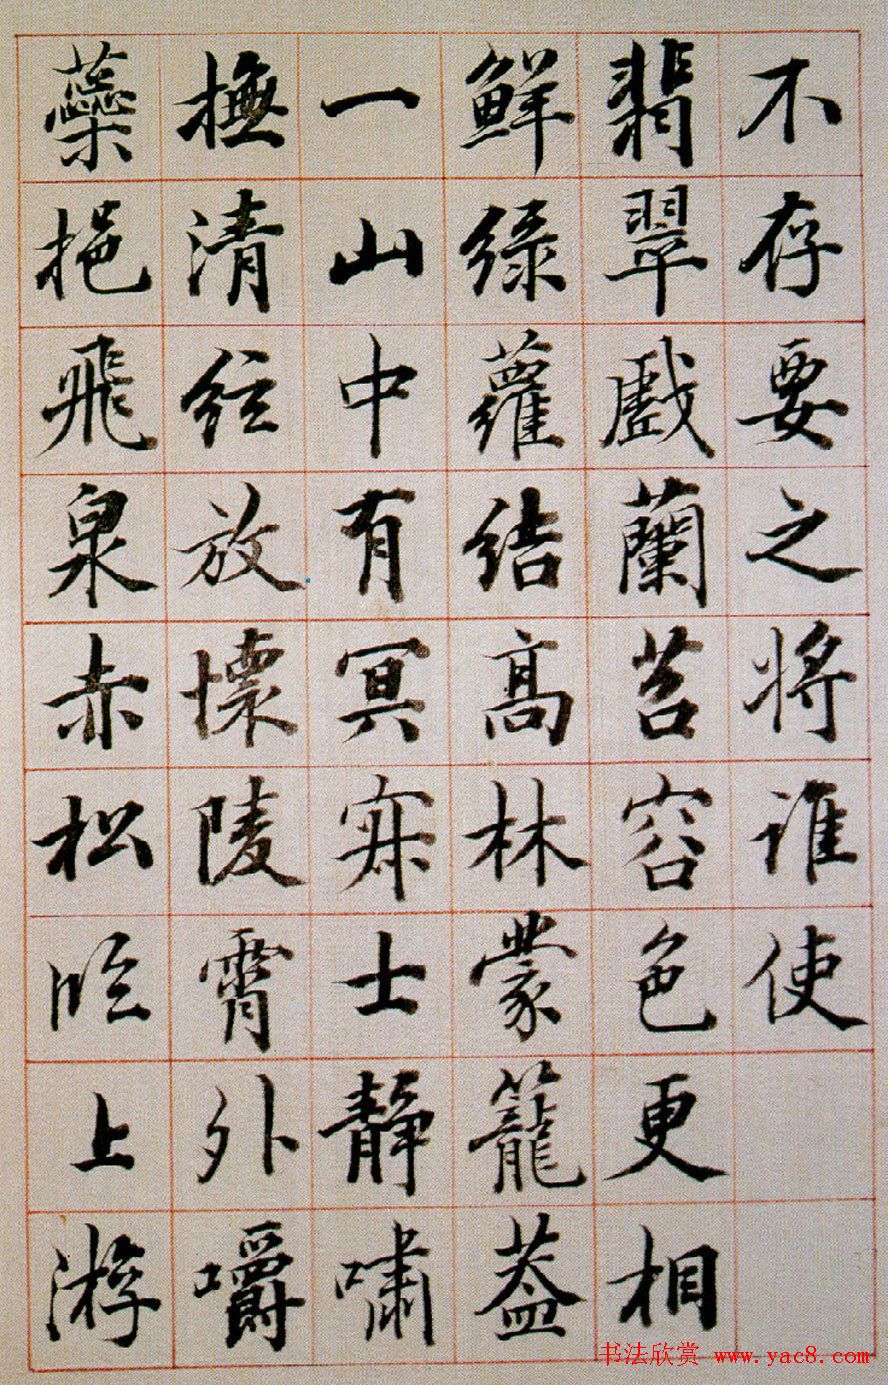 不存要之将誰使
翡翠戲蘭苕容色更相
鮮綠蘿結高林蒙籠蓋
一山中有冥寂士靜嘯
撫清絃放懷陵霄外嚼
蘂挹飛泉赤松臨上游
书法欣赏 www.yac8.com